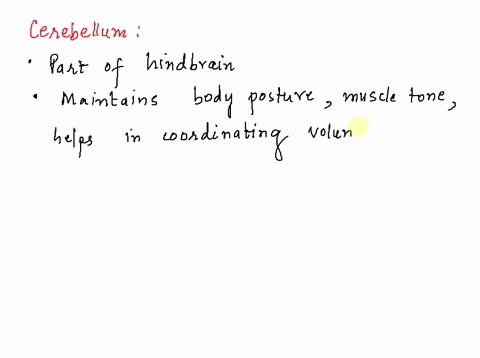 Cerebellum :
• Part of hindbrain
• Maintains body posture, muscle tone,
helps in coordinating volun